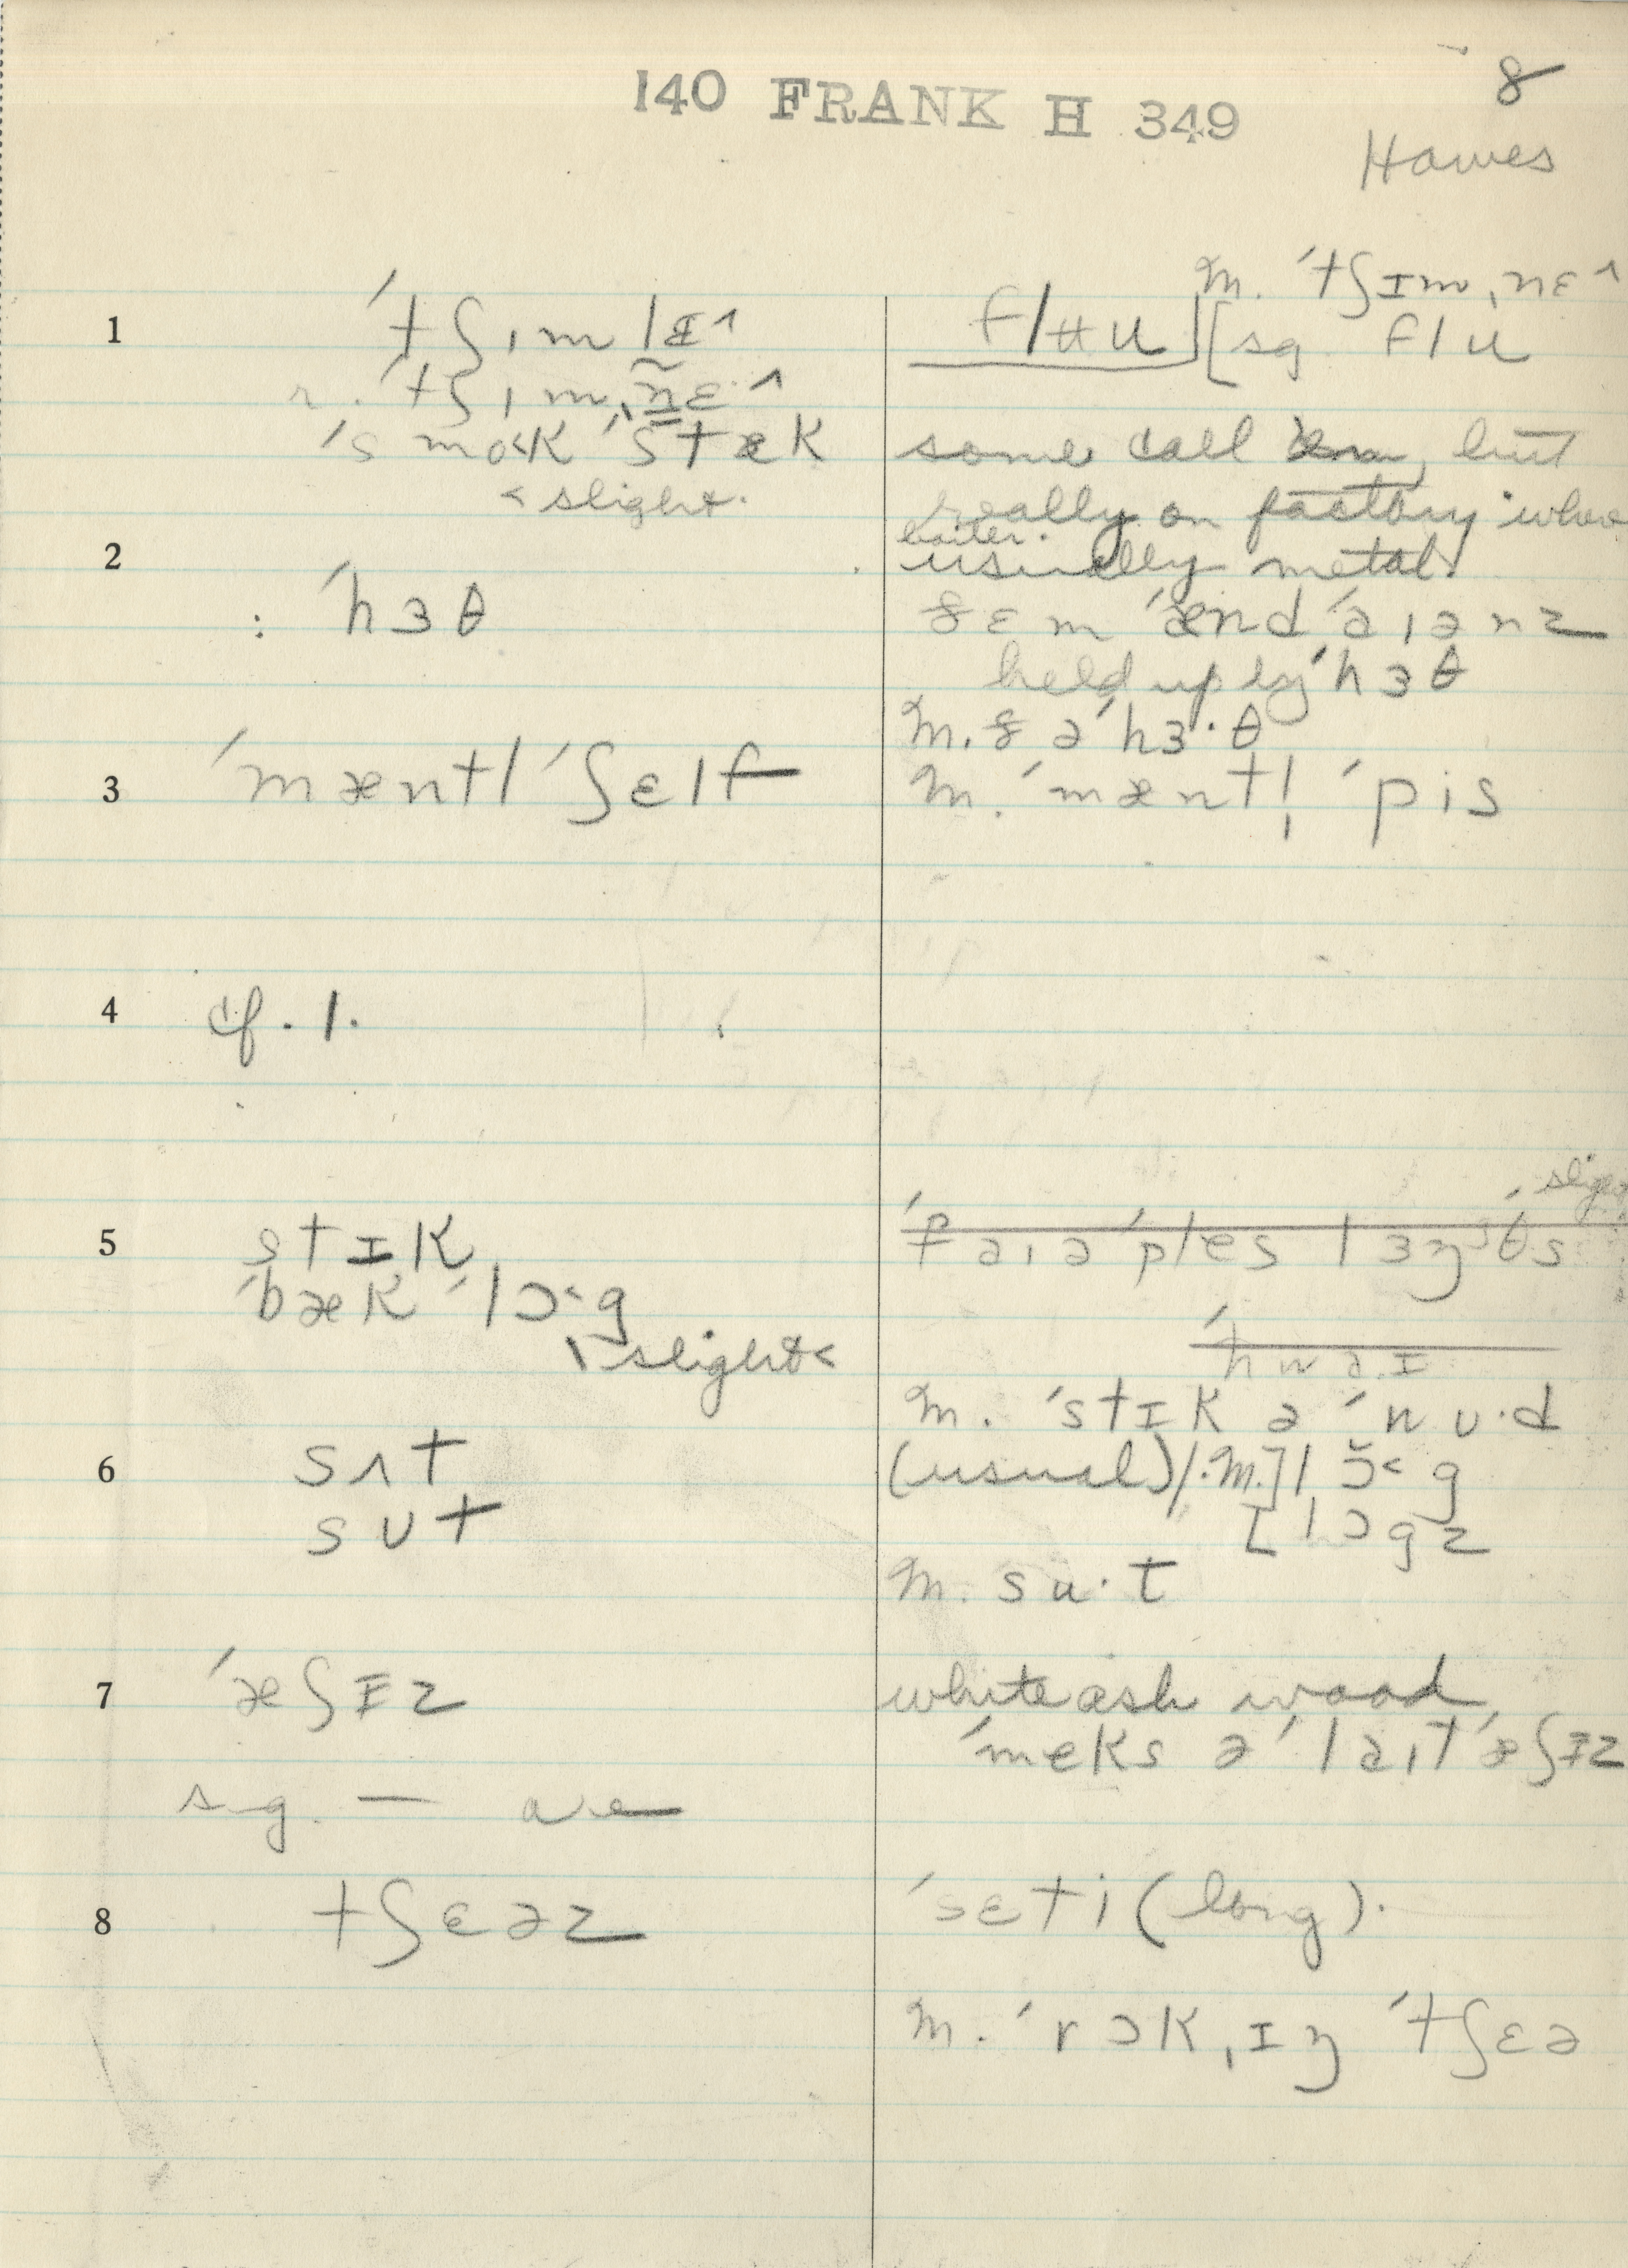 140 FRANK H 349
8
Hawes
1
ˈtʃɪmlɪ^
r. ˈtʃɪmˌnɛ·^
ˈsmo<k ˈstæk
< slight.
m. ˈtʃɪmˌnɛ^
flʉu] [sg flu
some call but
really on factory where
boiler.
usually metal
2
: ˈhɜθ
ˈænd ˈaɪənz
held up by ˈhɜθ
m. ðə ˈhɜ·θ
3
ˈmæntl ˈʃɛlf
m. ˈmæntl̩ ˈpis
4
cf. 1.
5
stɪk
ˈbæk ˈlɔ<g
slight<
slight
ˈfaɪəˈples
m. ˈstɪk ə ˈwʊ·d
(usual) /.m.] lɔ̆<g
[lɔgz
6
sʌt
sʊt
m. su·t
7
ˈæʃɪ̵z
white ash wood
ˈmeks ə ˈlaɪt ˈæʃɪ̵z
sg. — are
8
tʃɛəz
ˈsɛti (long).
m. ˈrɔkˌɪŋ ˈtʃɛə